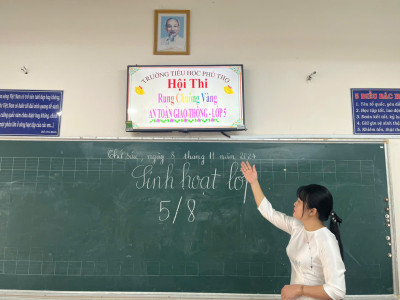 TRƯỜNG TIỂU HỌC PHÚ THỌ
Hội Thi
Rung Chuông Vàng
AN TOÀN GIAO THÔNG - LỚP 5
5 ĐIỀU BÁC
1. Yêu tổ quốc, yêu
2. Học tập tốt, lao
3. Đoàn kết tốt, kỷ
4. Giữ gìn vệ sinh
5. Khiêm tốn, thật
Thứ sáu, ngày 8 tháng 11 năm 2024
Sinh hoạt lớp
5/8